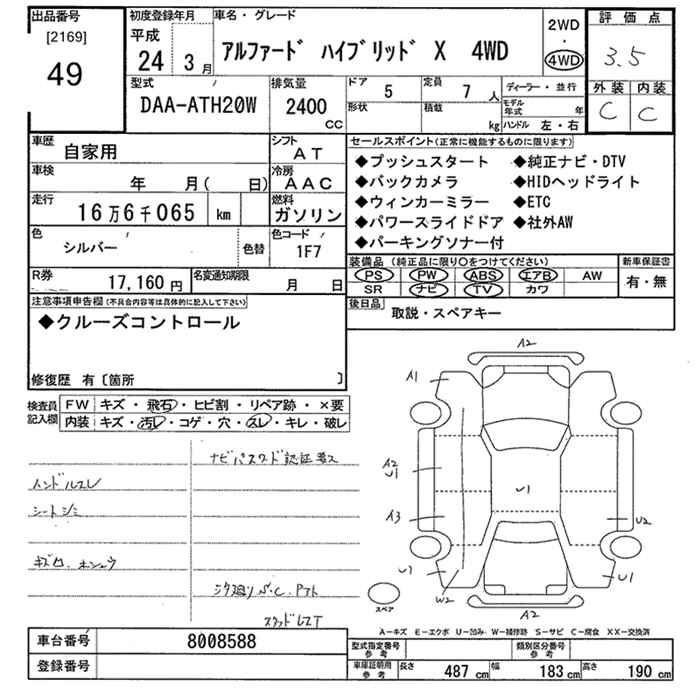 出品番号
[2169]
49
初度登録年月
平成
24 3月
車名・グレード
アルファード ハイブリッド X 4WD
2WD
・
4WD
評価点
3.5
外装 内装
C C
型式
DAA-ATH20W
排気量
2400
CC
ドア
5
定員
7 人
形状
積載
kg
ディーラー・並行
モデル年式 年
ハンドル 左・右
車歴
自家用
シフト
AT
車検
年 月( 日)
冷房
AAC
走行
16万6千065 km
燃料
ガソリン
色
シルバー
色替
色コード
1F7
R券
17,160 円
名変通知期限
月 日
セールスポイント(正常に機能するものに限ります)
◆プッシュスタート ◆純正ナビ・DTV
◆バックカメラ ◆HIDヘッドライト
◆ウィンカーミラー ◆ETC
◆パワースライドドア ◆社外AW
◆パーキングソナー付
装備品 (純正品に限り○をつけてください)
PS PW ABS エアB AW
SR ナビ TV カワ
新車保証書
有・無
後日品
取説・スペアキー
注意事項申告欄(不具合内容等は具体的に記入して下さい)
◆クルーズコントロール
修復歴 有〔箇所 〕
検査員記入欄
FW キズ・飛石・ヒビ割・リペア跡・×要
内装 キズ・汚レ・コゲ・穴・スレ・キレ・破レ
ナビパスワード認証要ス
ハンドルスレ
シートシミ
A2
A1
A2
U1
U1
A3
U2
U1
W2
A2
スペア
A-キズ E-エクボ U-凹み W-補修跡 S-サビ C-腐食 XX-交換済
車台番号
8008588
登録番号
型式指定番号
参考
類別区分番号
参考
車庫証明用
参考
長さ 487 cm 幅 183 cm 高さ 190 cm